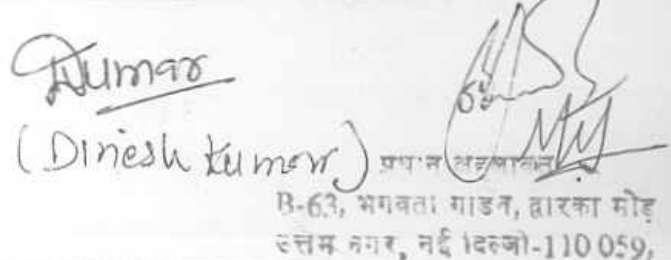 Dkumar
(Dinesh Kumar)
B-63, भगवती गार्डन, द्वारका मोड़
उत्तम नगर, नई दिल्ली-110 059,